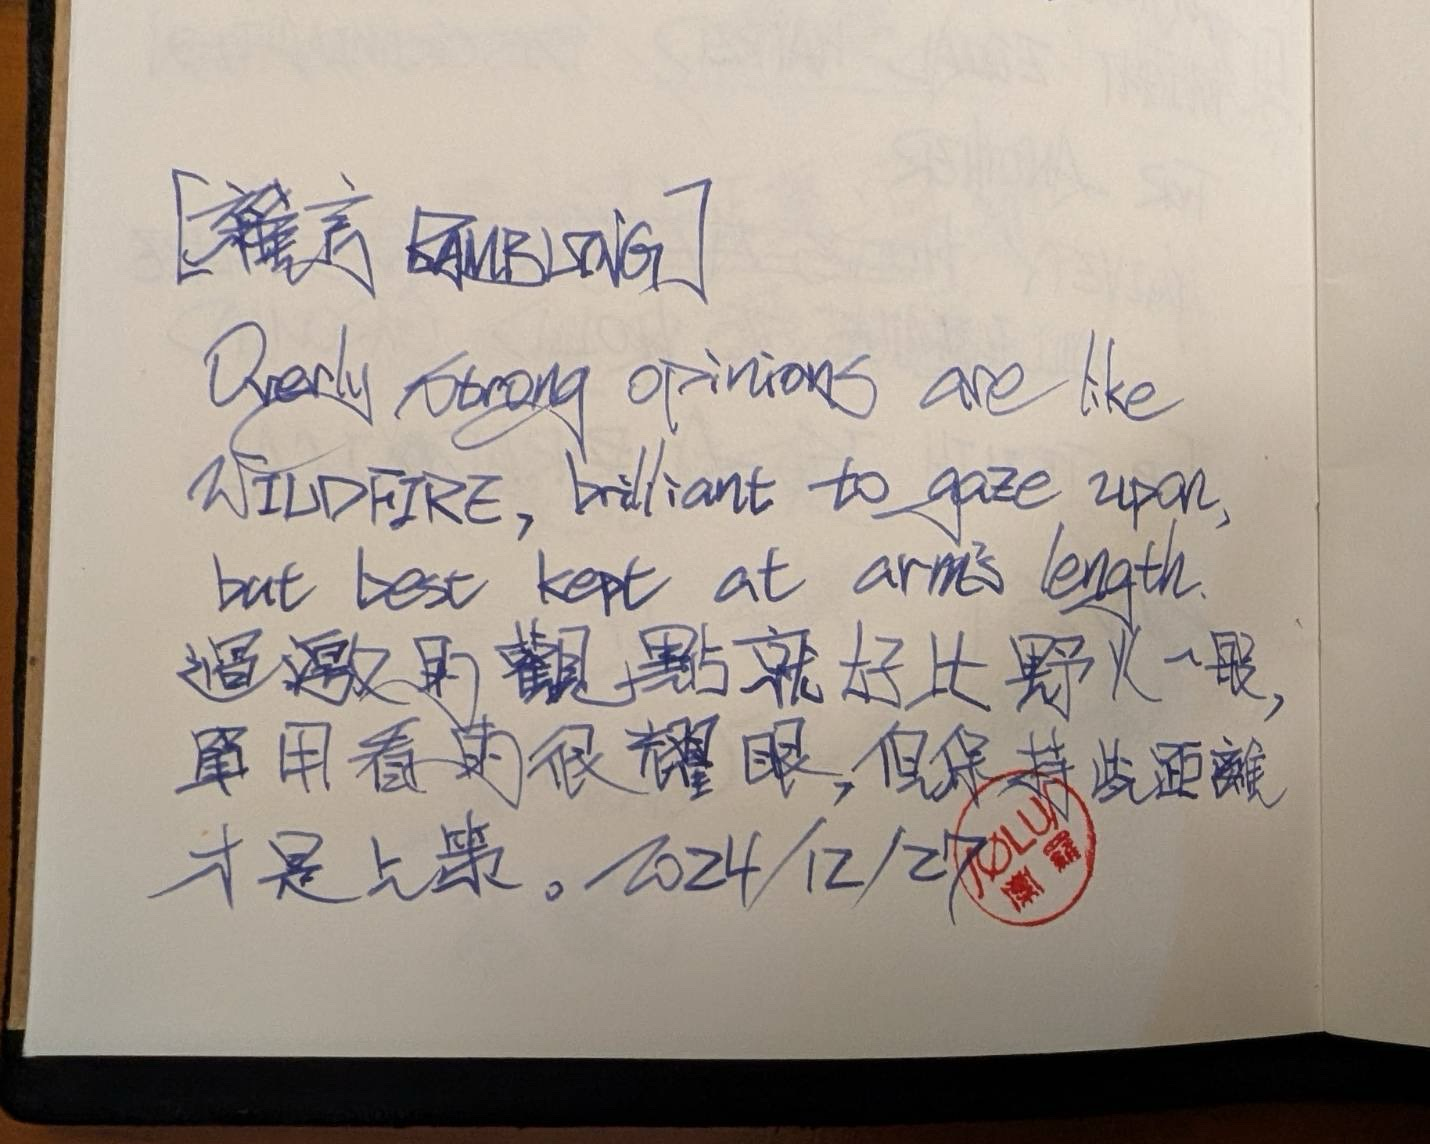 [雜言 RAMBLING]
Overly strong opinions are like
WILDFIRE, brilliant to gaze upon,
but best kept at arm's length.
過激的觀點就好比野火一般,
單用看的很耀眼,但保持些距離
才是上策。2024/12/27
KOLU